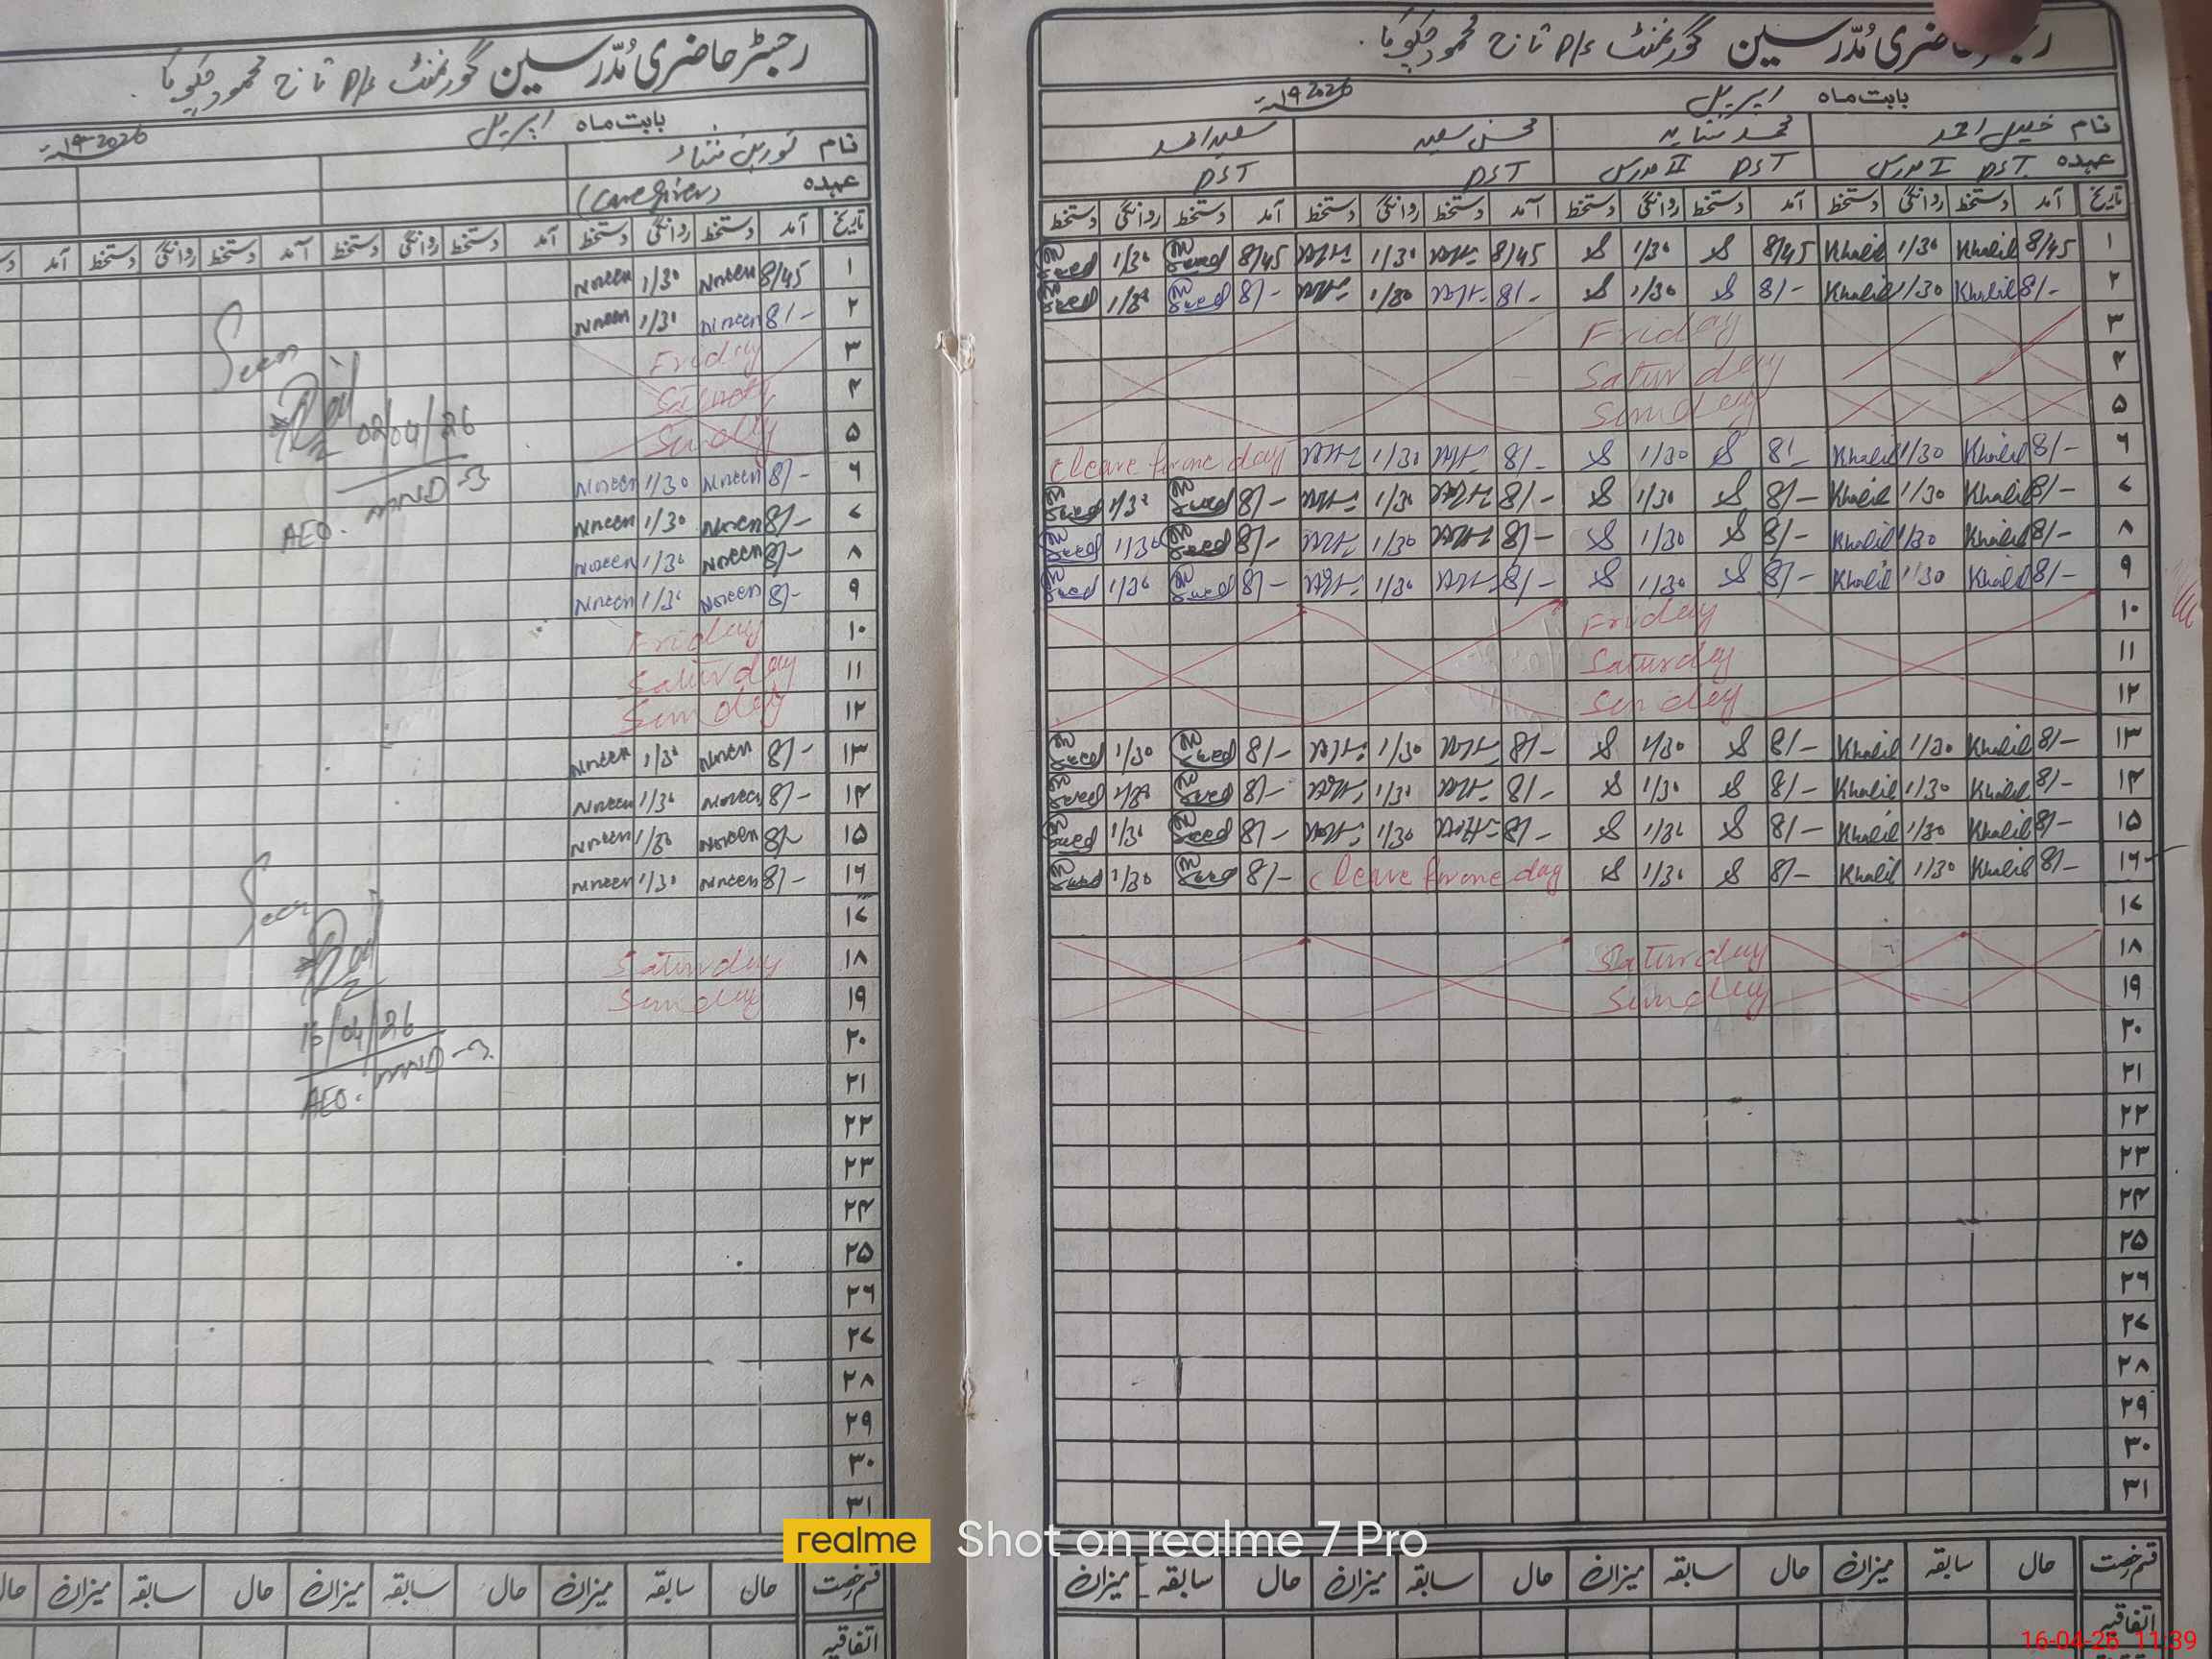 رجسٹر حاضری مُدّرسین گورنمنٹ
بابت ماہ اپریل 2026
نام خلیل احمد محمد محسن سعید سعید احمد
عہدہ PST I مدرس PST II مدرس PST PST
تاریخ آمد دستخط روانگی دستخط آمد دستخط روانگی دستخط آمد دستخط روانگی دستخط آمد دستخط روانگی دستخط
۱ 8/45 Khalil 1/30 Khalil 8/45 1/30 8/45 1/30 8/45 Saeed 1/30 Saeed
۲ 8/- Khalil 1/30 Khalil 8/- 1/30 8/- 1/30 8/- Saeed 1/30 Saeed
۳ Friday
۴ Saturday
۵ Sunday
۶ 8/- Khalil 1/30 Khalil 8/- 1/30 8/- 1/30 C leave for one day
۷ 8/- Khalil 1/30 Khalil 8/- 1/30 8/- 1/30 8/- Saeed 1/30 Saeed
۸ 8/- Khalil 1/30 Khalil 8/- 1/30 8/- 1/30 8/- Saeed 1/30 Saeed
۹ 8/- Khalil 1/30 Khalil 8/- 1/30 8/- 1/30 8/- Saeed 1/30 Saeed
۱۰ Friday
۱۱ Saturday
۱۲ Sunday
۱۳ 8/- Khalil 1/30 Khalil 8/- 1/30 8/- 1/30 8/- Saeed 1/30 Saeed
۱۴ 8/- Khalil 1/30 Khalil 8/- 1/30 8/- 1/30 8/- Saeed 1/30 Saeed
۱۵ 8/- Khalil 1/30 Khalil 8/- 1/30 8/- 1/30 8/- Saeed 1/30 Saeed
۱۶ 8/- Khalil 1/30 Khalil 8/- 1/30 C leave for one day 8/- Saeed 1/30 Saeed
۱۷
۱۸ Saturday
۱۹ Sunday
۲۰
۲۱
۲۲
۲۳
۲۴
۲۵
۲۶
۲۷
۲۸
۲۹
۳۰
۳۱
قسم رخصت حال سابقہ میزان حال سابقہ میزان حال سابقہ میزان حال سابقہ میزان
اتفاقیہ
رجسٹر حاضری مُدّرسین گورنمنٹ
بابت ماہ اپریل 2026
نام نورین
عہدہ (Caregiver)
تاریخ آمد دستخط روانگی دستخط آمد دستخط روانگی دستخط آمد دستخط روانگی دستخط آمد
۱ 8/45 Noreen 1/30 Noreen
۲ 8/- Noreen 1/30 Noreen
۳ Friday
۴ Saturday
۵ Sunday
۶ 8/- Noreen 1/30 Noreen
۷ 8/- Noreen 1/30 Noreen
۸ 8/- Noreen 1/30 Noreen
۹ 8/- Noreen 1/30 Noreen
۱۰ Friday
۱۱ Saturday
۱۲ Sunday
۱۳ 8/- Noreen 1/30 Noreen
۱۴ 8/- Noreen 1/30 Noreen
۱۵ 8/- Noreen 1/30 Noreen
۱۶ 8/- Noreen 1/30 Noreen
۱۷
۱۸ Saturday
۱۹ Sunday
۲۰
۲۱
۲۲
۲۳
۲۴
۲۵
۲۶
۲۷
۲۸
۲۹
۳۰
۳۱
Seen
02/04/26
AEO.
Seen
16/04/26
AEO.
قسم رخصت حال سابقہ میزان حال سابقہ میزان حال سابقہ میزان حال
اتفاقیہ
realme Shot on realme 7 Pro
16-04-26 11:39